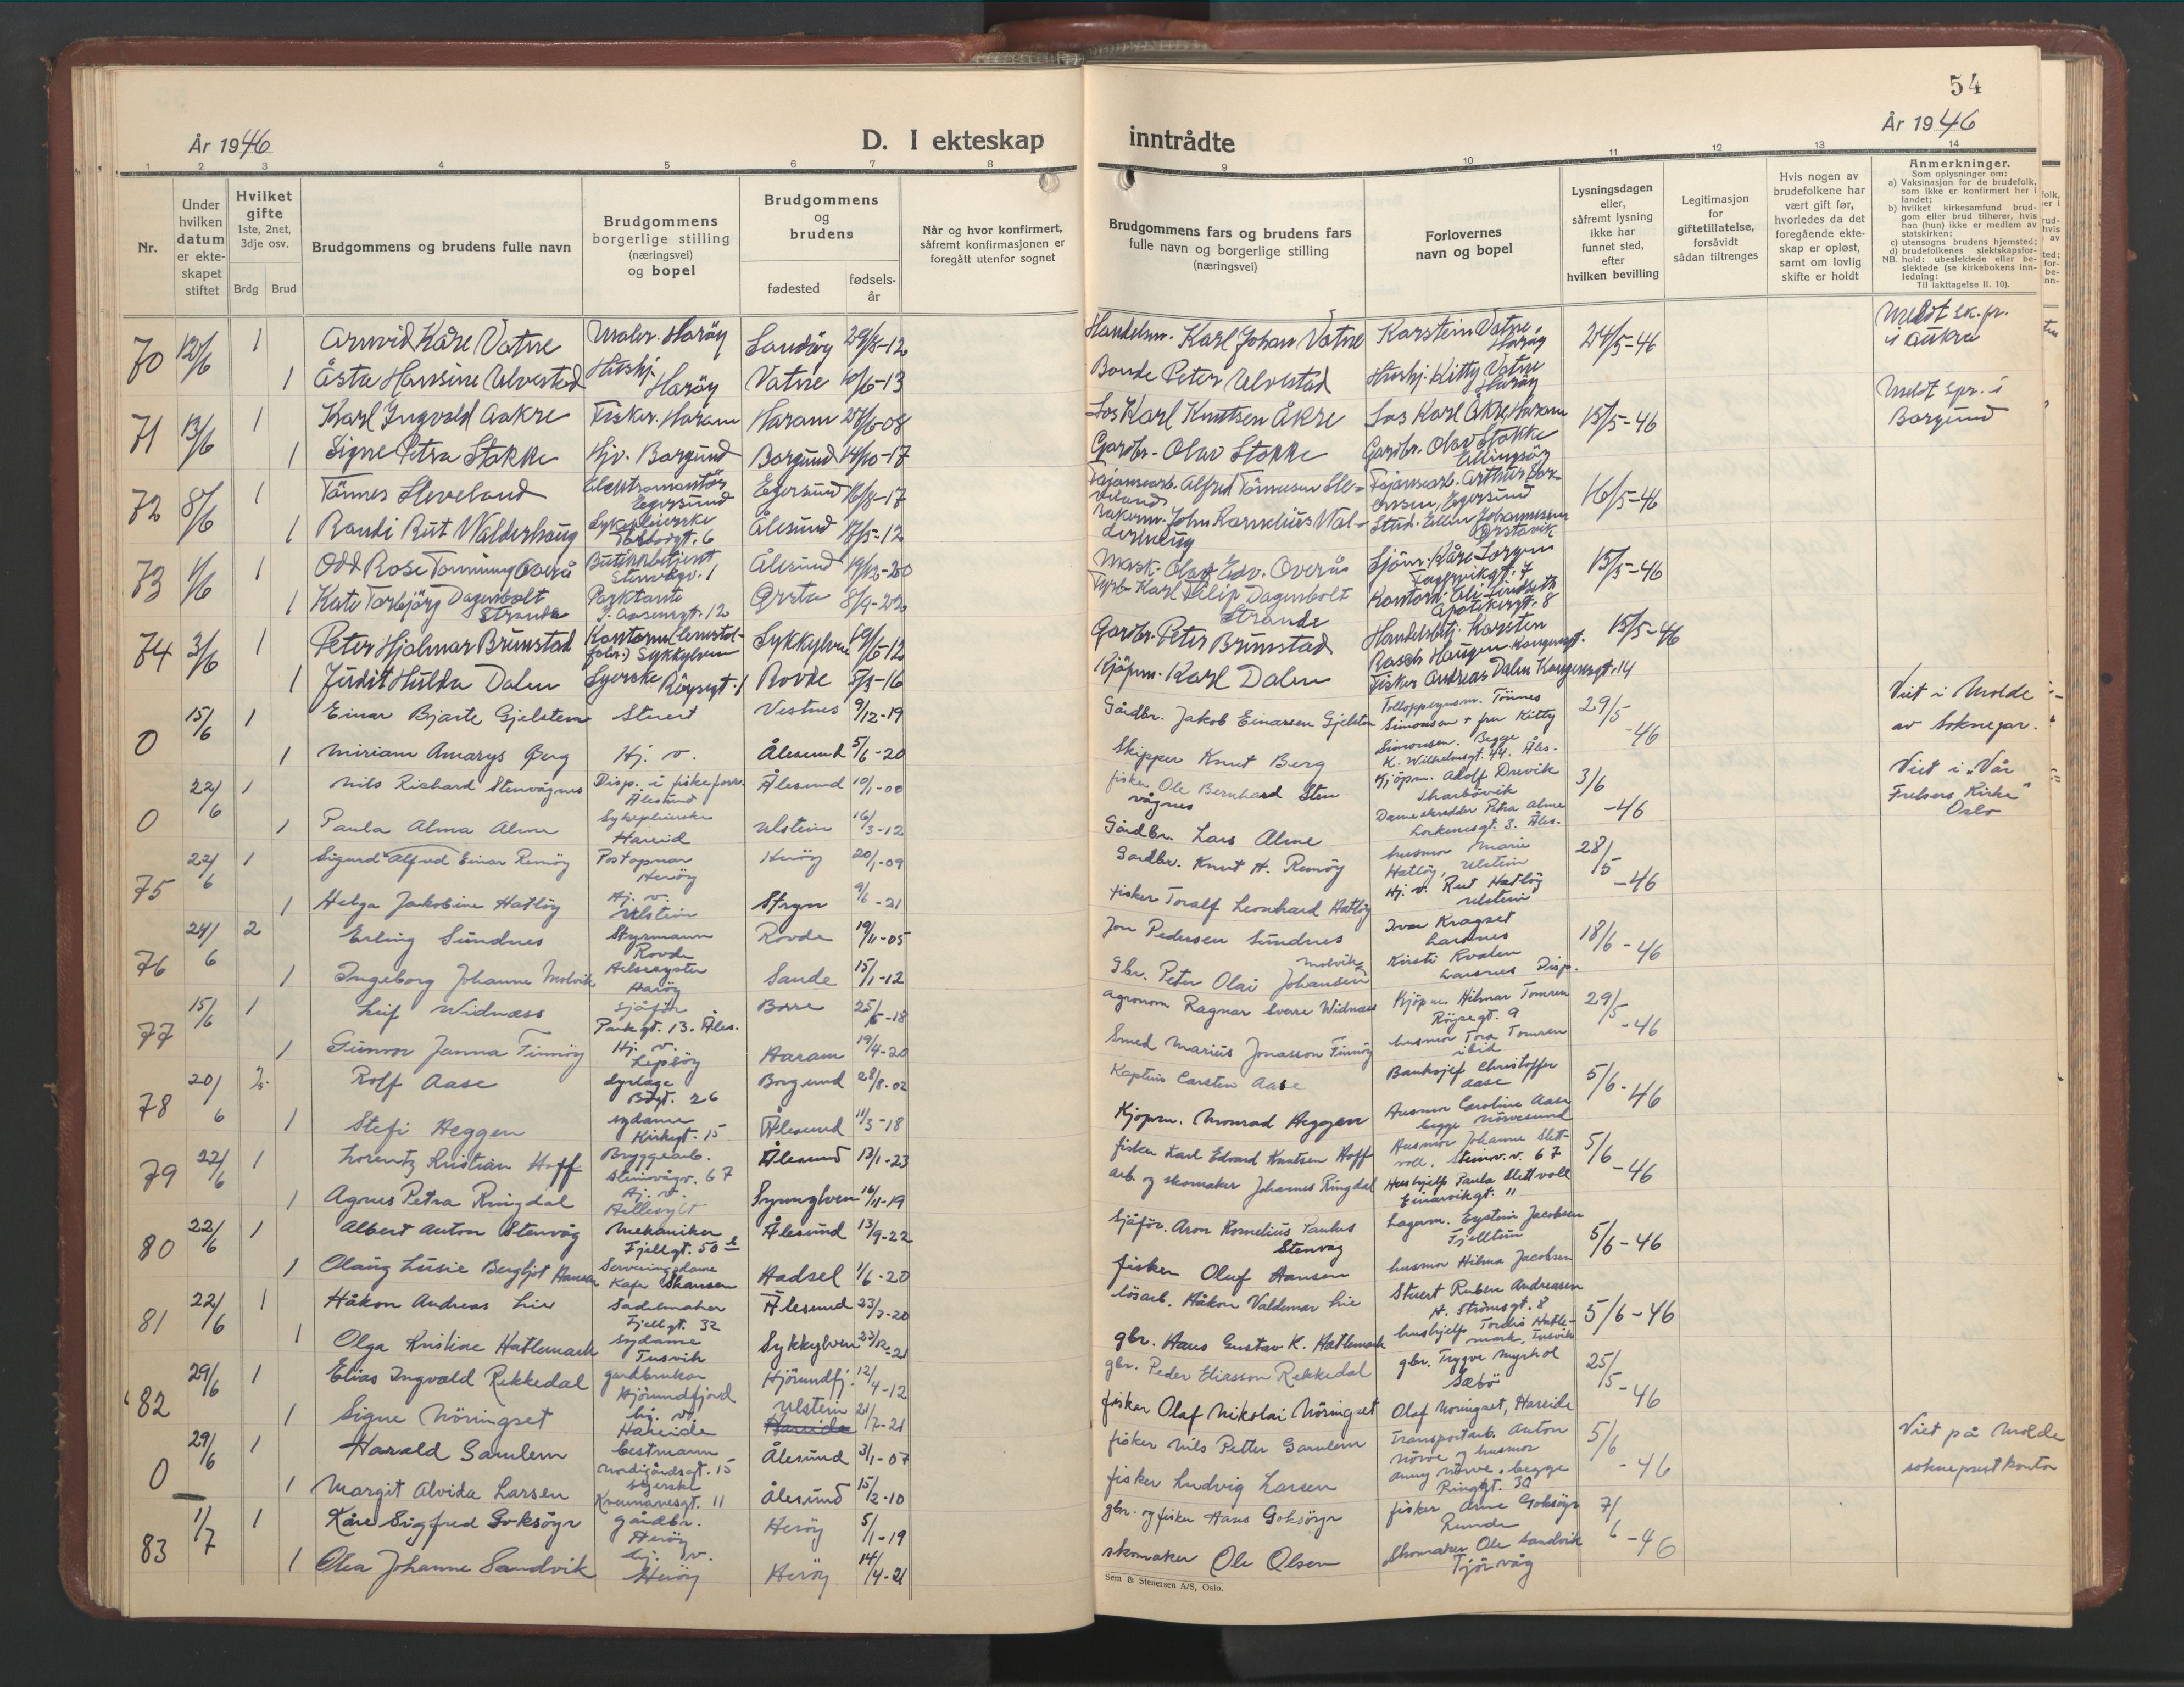 54
År 1946
D. I ekteskap
inntrådte
År 1946
1 2 3 4 5 6 7 8
9 10 11 12 13 14
Nr.
Under hvilken datum er ekteskapet stiftet
Hvilket gifte 1ste, 2net, 3dje osv.
Brdg Brud
Brudgommens og brudens fulle navn
Brudgommens borgerlige stilling (næringsvei) og bopel
Brudgommens og brudens
fødested
fødsels-år
Når og hvor konfirmert, såfremt konfirmasjonen er foregått utenfor sognet
Brudgommens fars og brudens fars fulle navn og borgerlige stilling (næringsvei)
Forlovernes navn og bopel
Lysningsdagen eller, såfremt lysning ikke har funnet sted, efter hvilken bevilling
Legitimasjon for giftetillatelse, forsåvidt sådan tiltrenges
Hvis nogen av brudefolkene har vært gift før, hvorledes da det foregående ekteskap er opløst, samt om lovlig skifte er holdt
Anmerkninger.
Som oplysninger om:
a) Vaksinasjon for de brudefolk, som ikke er konfirmert her i landet;
b) hvilket kirkesamfund brudgom eller brud tilhører, hvis han (hun) ikke er medlem av statskirken;
c) utensogns brudens hjemsted;
d) brudefolkenes slektskapsforhold: ubeslektede eller beslektede (se kirkebokens innledning:
NB.
Til iakttagelse II. 10).
70 12/6 1 Arnvid Kåre Vatne Maler. Harøy Sandøy 29/8-12 Handelsm. Karl Johan Vatne Karstein Vatne, Harøy 24/5-46 Meldt sk.pr. i Aukra
1 Åsta Hansine Ulvestad Hushj. Harøy Vatne 10/6-13 Bonde Peter Ulvestad Hushj. Kitty Vatne Harøy
71 13/6 1 Karl Ingvald Aakre Fisker. Haram Haram 27/6-08 Los Karl Knutsen Åkre Los Karl Åkre, Haram 15/5-46 Meldt spr. i Borgund
1 Signe Petra Stokke Hjv. Borgund Borgund 14/10-17 Gardbr. Olav Stokke Gardbr. Olav Stokke Ellingsøy
72 8/6 1 Tönnes Sleveland Elektromontör Egersund Egersund 16/8-17 Fajansearb. Alfred Tönnesen Sleveland Fajansearb. Arthur Egersund 16/5-46
1 Randi Rut Walderhaug Sykepleierske 6 Ålesund 17/5-12 John Kornelius Walderhaug Stud. Ellen Johannessen Ørstavik
73 1/6 1 Odd Rose Tonning Overå Butikkbetjent Steinvågv. 1 Ålesund 19/12-20 Mask. Olaf Edv. Overås Sjöm. Kåre 7 15/5-46
1 Kate Torbjörg Dagenbolt Strande Parktante I. Aasensgt. 12 Ørsta 8/9-22 Fyrb. Karl Filip Dagenbolt Strande Kontorh. Apotekergt. 8
74 3/6 1 Peter Hjalmar Brunstad Sykkylven Sykkylven 12 Gardbr. Peter Brunstad Handelsbtj. Karsten Rasch Haugen Kongensgt. 15/5-46
1 Judit Hulda Dalen Syerske Röysegt. 1 Rovde 5/3-16 Kjöpm. Karl Dalen Fisker Andreas Dalen Kongensgt. 14
0 15/6 1 Einar Bjarte Gjelsten Stuert Vestnes 9/12-19 Gårdbr. Jakob Einarsen Gjelsten Tolloppsynsm. Tönnes Simonsen + fru Kitty 29/5 -46 Viet i Molde av Soknepr.
1 Miriam Amarys Berg Hj. v. Ålesund 5/6-20 Skipper Knut Berg Simonsen. Begge K. Wilhelmsgt. 44. Åls.
0 22/6 1 Nils Richard Stenvågnes Disp. i fiskeforr. Ålesund Ålesund 10/1-00 fisker Ole Bernhard Stenvågnes Kjöpm. Adolf Drevik Skarbövik 3/6 -46 Viet i "Vår Frelsers Kirke" Oslo
1 Paula Alma Alme Sykepleierske Hareid Ulstein 16/3-12 Gårdbr. Lars Alme Dameskredder Petra Alme Lorkenesgt. 3. Åls.
75 22/6 1 Sigurd Alfred Einar Remöy Postopnar Heröy Heröy 20/1-09 Gardbr. Knut H. Remöy husmor Marie Hatlöy, Ulstein 28/5 -46
1 Helga Jakobine Hatlöy Hj. v. Ulstein Stryn 9/6-21 fisker Toralf Leonhard Hatlöy Hj. v. Rut Hatlöy Ulstein
76 24/6 2 Erling Sundnes Styrmann Rovde Rovde 19/11-05 Jon Pedersen Sundnes Ivar Kragset Larsnes 18/6-46
1 Ingeborg Johanne Molvik Helsesyster Haröy Sande 15/1-12 Gbr. Peter Olai Johansen Molvik Kirsti Kvalen Larsnes Disp.
77 15/6 1 Leif Widnæss Sjåför Parkgt. 13. Åles. Borre 25/5-18 Agronom Ragnar Sverre Widnæss Kjöpm. Hilmar Tomren Röysegt. 9 29/5 -46
1 Gunvor Janna Finnöy Hj. v. Lepsöy Haram 19/4-20 Smed Marius Jonasson Finnöy husmor Tora Tomren ibid
78 20/6 2. Rolf Aase dyrlæge 26 Borgund 28/8-02 Kaptein Carsten Aase Banksjef Christoffer Aase 5/6-46
1 Stefi Heggen sydame Kirkegt. 15 Ålesund 11/3-18 Kjöpm. Monrad Heggen Husmor Caroline Aase begge Nörvesund
79 22/6 1 Lorentz Kristian Hoff Bryggearb. Steinvågv. 67 Ålesund 13/1-23 fisker Karl Edvard Knutsen Hoff Husmor Johanne Slettvoll. Steinv.v. 67 5/6 -46
1 Agnes Petra Ringdal Hj. v. Hellesylt Synnylven 16/11-19 arb. og skomaker Johannes Ringdal Hushjelp Paula Slettvoll Einarvikgt. 11
80 22/6 1 Albert Anton Stenvåg Mekaniker Fjellgt. 50 b Ålesund 13/9-22 Sjåför. Aron Kornelius Paulus Stenvåg Lagerm. Eystein Jacobsen Fjelltun 5/6-46
1 Olaug Lusie Bergljot Hansen Serveringsdame Kafe Skansen Hadsel 1/6-20 fisker Oluf Hansen husmor Hilma Jacobsen
81 22/6 1 Håkon Andreas Lie Sadelmaker Fjellgt. 32 Ålesund 23/3-20 lösarb. Håkon Valdemar Lie Stuert Ruben Andreasen H. Strömsgt. 8 5/6-46
1 Olga Kristine Hatlemark sydame Tusvik Sykkylven 23/12-21 gbr. Hans Gustav K. Hatlemark hushjelp Tordis Hatlemark, Tusvik
82 29/6 1 Elias Ingvald Rekkedal gardbrukar Hjörundfjord Hjörundfj. 12/4-12 gbr. Peder Eliasson Rekkedal gbr. Trygve Myrhol Sæbö 25/5-46
1 Signe Nöringset hj. v. Hareide Ulstein Hareide 21/7-21 fisker Olaf Nikolai Nöringset Olaf Noringset, Hareide
0 29/6 1 Harald Gamlem bestmann Nordigårdsgt. 15 Ålesund 3/1-07 fisker Nils Petter Gamlem Transportarb. Anton Nörve og husmor 5/6 -46 Viet på Molde sokneprestkontor
1 Margit Alvida Larsen syerske 11 Ålesund 15/2-10 fisker Ludvig Larsen Anny Nörve, begge Ringgt. 30
83 1/7 1 Kåre Sigfred Goksöyr gårdbr. Heröy Heröy 5/1-19 gbr. og fisker Hans Goksöyr fisker Arne Goksöyr Runde 7/6-46
1 Olea Johanne Sandvik hj. v. Heröy Heröy 14/4-21 skomaker Ole Olsen Skomaker Ole Sandvik Tjörvåg
Sem & Stenersen A/S, Oslo.